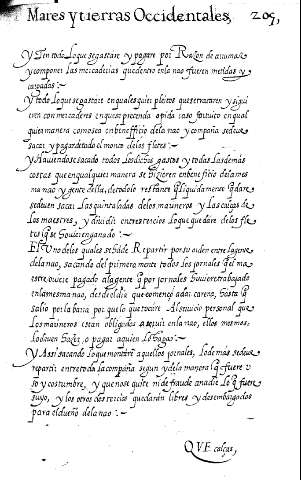 Mares y tierras Occidentales, 205,
y En todo lo que se gastare y pagare por Razon de arrumar
y componer las mercaderias que dentro en la nao fueren metidas y
cargadas:
y todo lo que se gastare en qualesquier pleitos que se trataren y sigui
eren con mercaderes en que se pretenda a pida caso fortuito en qual
quier manera como sea en beneficio de la nao y compaña se deue
sacar y pagar de todo el monto de los fletes:
y Auiendose sacado todos los dichos gastos y todas las demas
costas que en qualquier manera se hizieren en beneficio de la mes
ma nao y gente della, de todo lo restante q̃ liquidamente q̃dare
se deuen sacar Las quintaladas de los marineros y Las cuiças de
los maestres, y diuidir en tres tercios lo que quedare de los fle
tes q̃ se houieren ganado:
El Vno de los quales se ha de Repartir por su orden entre la gente
de la nao, sacando del primero monte todos los jornales q̃ el ma
estre ouiere pagado a la gente q̃ por jornales houiere trabajado
en la mesma nao, desde el dia que començo a dar carena, hasta q̃
salio por la barra por q̃ lo que tocare Al seruicio personal que
los marineros estan obligados a seruir en la nao, ellos mesmos
lo deuen hazer o pagar a quien lo haga:
y Assi sacando lo que montarē aquellos jornales, lo demas se deue
repartir entre toda la compaña segun y de la manera q̃ fuere v
so y costumbre, y que no se quite ni defraude a nadie Lo q̃ fuere
suyo, y los otros dos tercios quedarán libres y desembargados
para el dueño de la nao:
QVE calças,